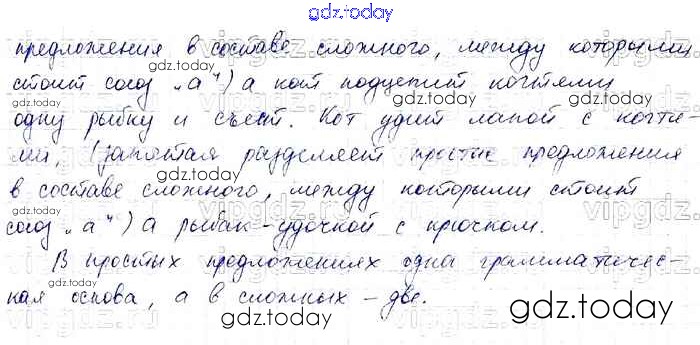 gdz.today
предложения в составе сложного, между которыми
стоит союз „а") а кот подцепит когтями
одну рыбку и съест. Кот удит лапой с когтя-
ми, (запятая разделяет простые предложения
в составе сложного, между которыми стоит
союз „а") а рыбак - удочкой с крючком.
В простых предложениях одна грамматичес-
кая основа, а в сложных - две.
gdz.today
gdz.today